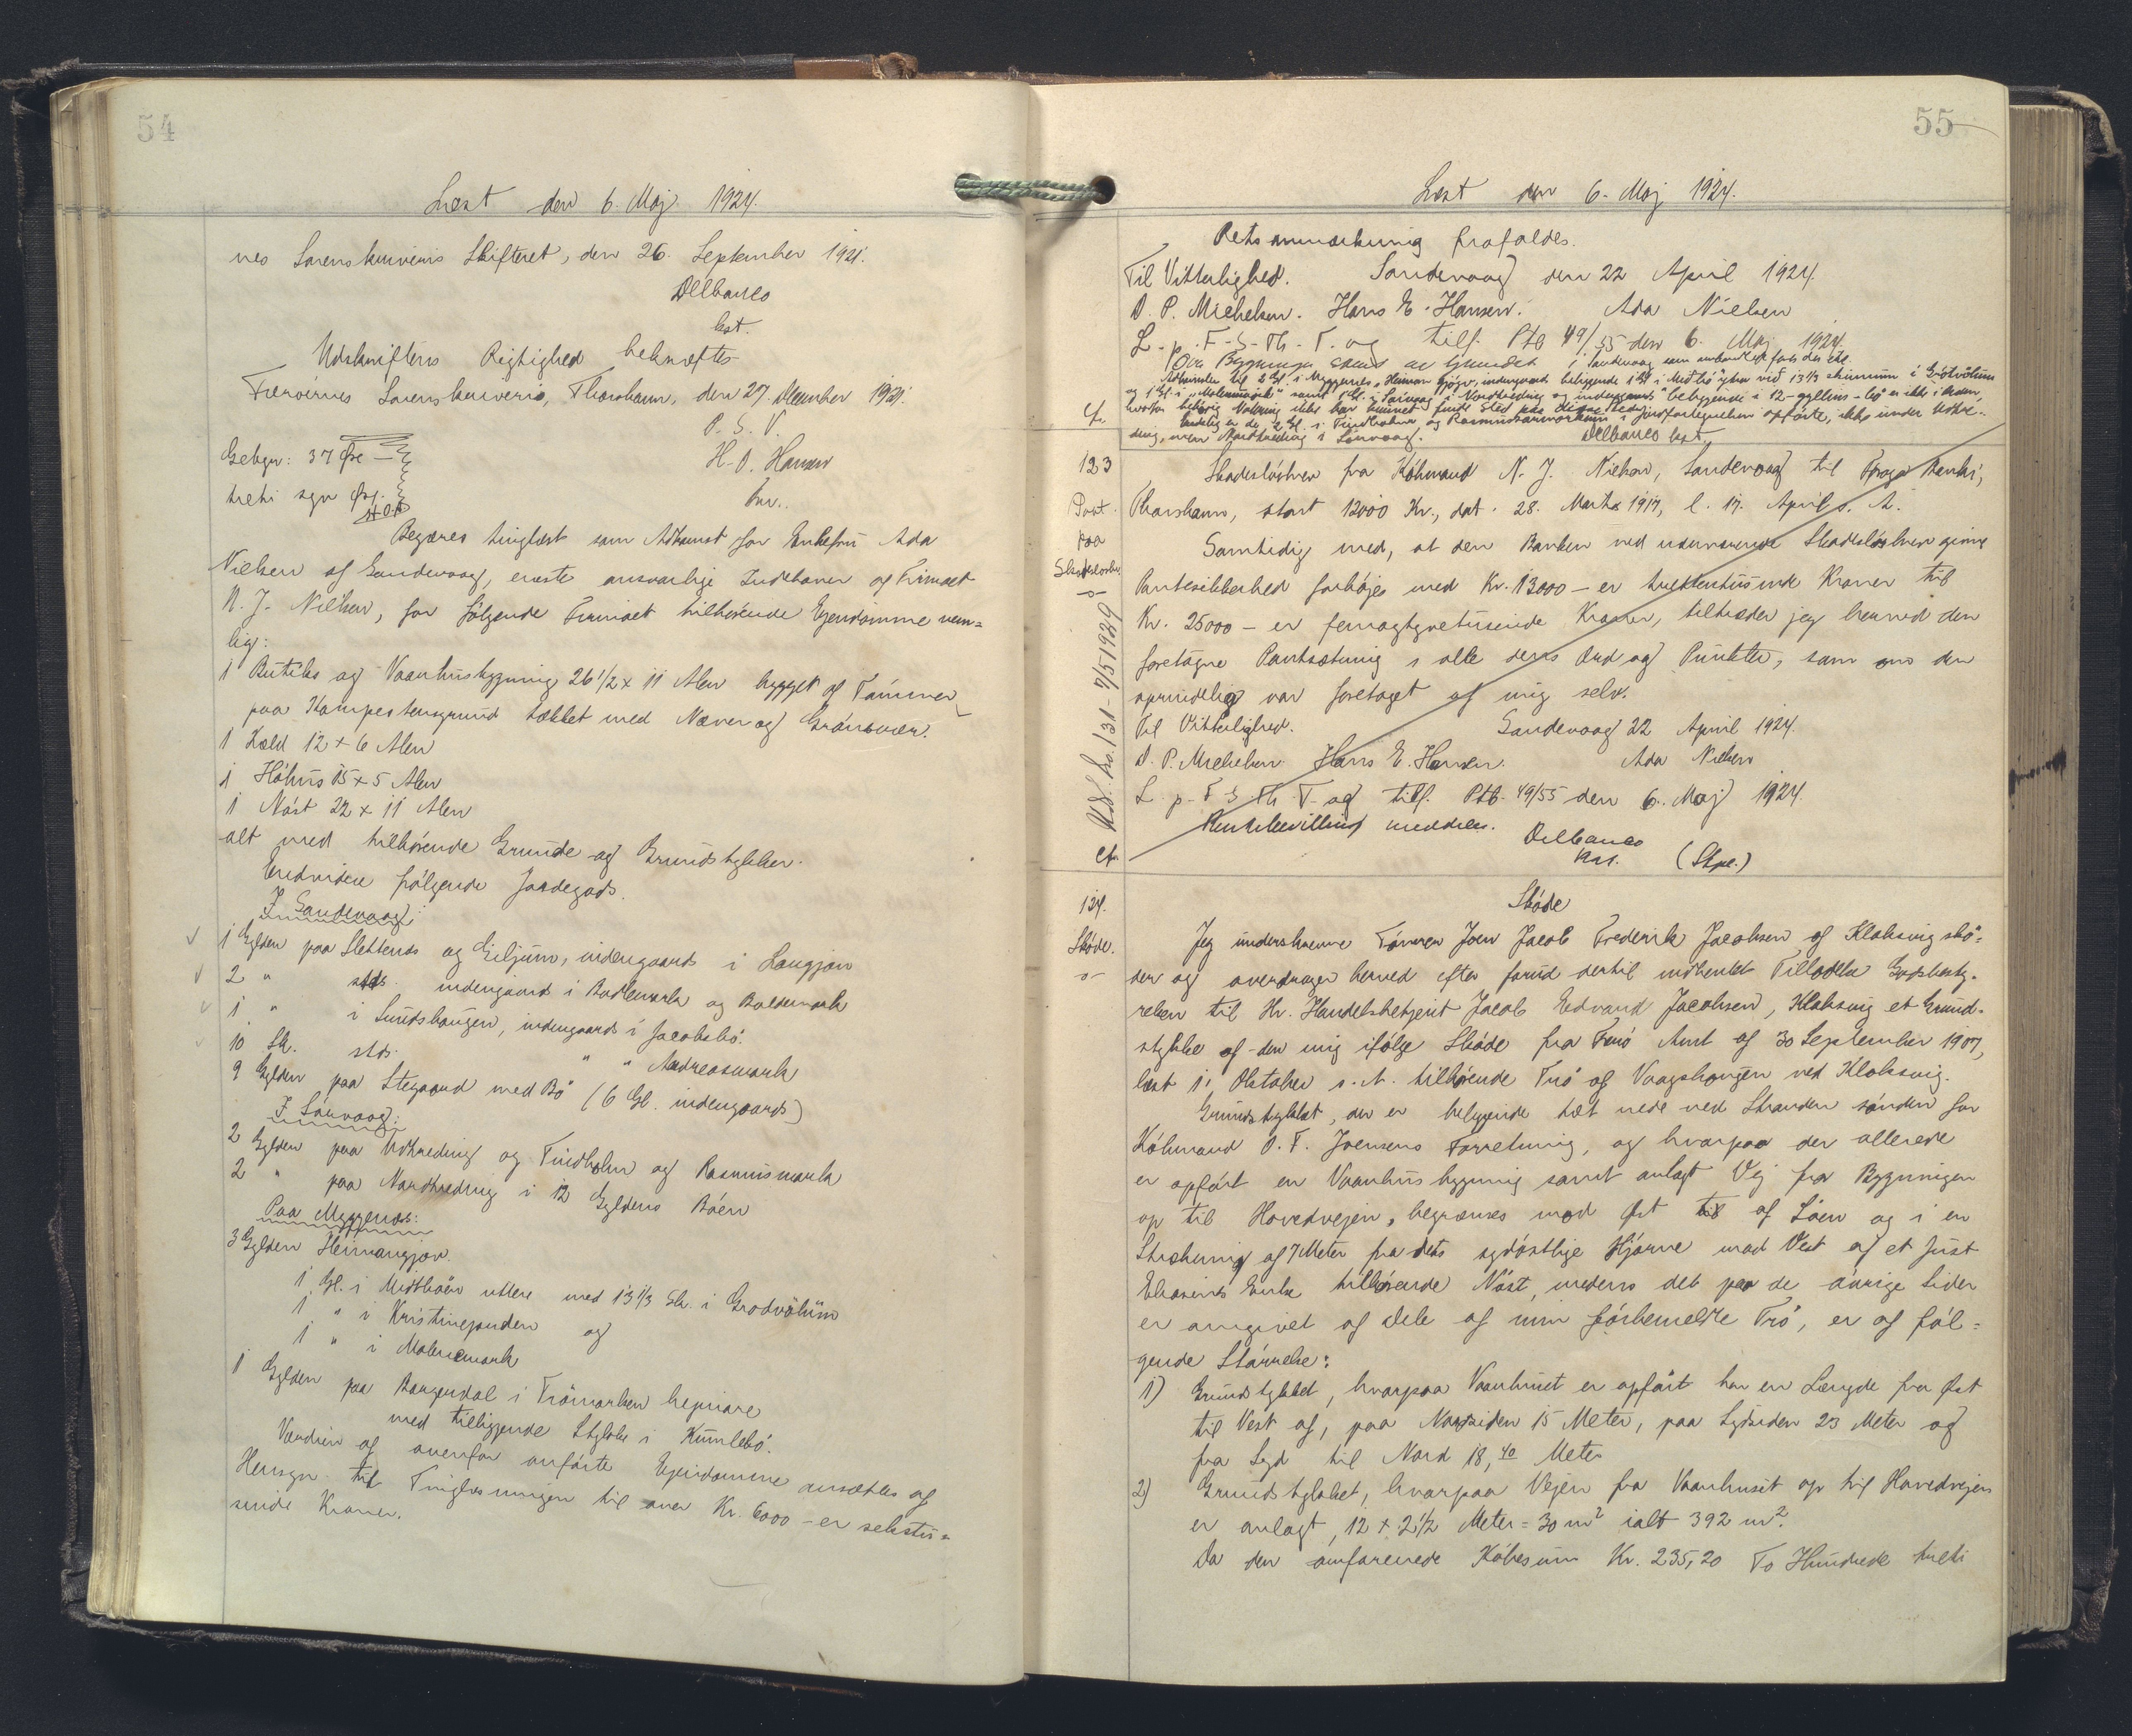 54
Læst den 6. Maj 1924.
nes Sorenskriveris Skifteret, den 26. September 1921.
Delbanco
kst.
Udskriftens Rigtighed bekræftes
Færøernes Sorenskriveri, Thorshavn, den 27. December 1921.
P. S. V.
H. D. Hansen
Gebyr: 37 Øre
treti syv Øre.
Begæres tinglæst som Adkomst for Enkefru Ada
Nielsen af Sandevaag, eneste ansvarlige Indehaver af Firmaet
N. J. Nielsen, for følgende Firmaet tilhørende Ejendomme nem=
lig:
1 Butiks og Vaanhusbygning 26 1/2 x 11 Alen bygget af Tømmer
paa Kampestensgrund tækket med Næver og Grønsvær.
1 Kæld 12 x 6 Alen
1 Høhus 15 x 5 Alen
1 Nøst 22 x 11 Alen
alt med tilhørende Grunde og Grundstykker.
Endvidere følgende Jordegods.
I Sandevaag:
1 Gylden paa Slettends og Giljum, indengaards i Laugjon
2 " stds. indengaards i Bodlemark og Baldemark
1 " i Sundshaugen, indengaards i Jacobsbø.
10 Sk. stds. " " Andreasmark
9 Gylden paa Stegaard med Bø (6 Gl. indengaards)
I Sørvaag:
2 Gylden paa Udtræding og Tindholm og Rasmusmark
2 " paa Nordtræding i 12 Gyldens Bøen
Paa Myggenæs:
3 Gylden Heimangjov.
1 Gl. i Midtbøen uttere med 13 1/3 Sk. i Grodvølum
1 " i Kristinejorden og
1 " i Malenemark
1 Gylden paa Borgendal i Trømarken hepriore
med tilliggende Stykke i Kumlebø.
Værdien af ovenfor anførte Ejendomme ansættes af
Hensyn til Tinglæsningen til over Kr. 6000 - er sekstu=
sinde Kroner.
55
Læst den 6. Maj 1924.
Retsanmærkning frafaldes.
Til Vitterlighed. Sandevaag den 22 April 1924.
D. P. Michelsen. Hans E. Hansen. Ada Nielsen
L. p. F-S-Th-T. og tilf. Ptb 49/55 den 6. Maj 1924.
Delbanco kst.
123
Paat.
paa
Skadesløsbr.
Skadesløsbrev fra Købmand N. J. Nielsen, Sandevaag til Føroya Banki,
Thorshavn, stort 12000 Kr., dat. 28. Marts 1917, l. 17. April s. A.
Samtidig med, at den Banken ved nærværende Skadesløsbrev givne
Pantesikkerhed forhøjes med Kr. 13000 - er trettentusinde Kroner til
Kr. 25000 - er femogtyvetusinde Kroner, tiltræder jeg herved den
foretagne Pantsætning i alle dens Ord og Punkter, som om den
oprindelig var foretaget af mig selv.
Til Vitterlighed. Sandevaag 22 April 1924.
D. P. Michelsen. Hans E. Hansen. Ada Nielsen
L. p. F. S. Th. T. og tilf. Ptb. 49/55 den 6. Maj 1924.
Rentebevilling meddeles.
Delbanco
kst. (Stpl.)
Udsl. No. 131 - 7/5 1929
124.
Skøde.
Skøde
Jeg underskrevne Tømrer Joen Jacob Frederik Jacobsen af Klaksvig skø=
der og overdrager herved efter forud dertil indhentet Tilladelse Godsbesty-
relsen til Hr. Handelsbetjent Jacob Edvard Jacobsen, Klaksvig et Grund-
stykke af den mig ifølge Skøde fra Færø Amt af 30 September 1907,
læst 1. Oktober s. A. tilhørende Trø af Vaagshaugen ved Klaksvig.
Grundstykket, der er beliggende tæt nede ved Stranden sønden for
Købmand O. F. Joensens Forretning, og hvorpaa der allerede
er opført en Vaanhusbygning samt anlagt Vej fra Bygningen
op til Hovedvejen, begrænses mod Øst til af Søen og i en
Strækning af 7 Meter fra dets sydøstlige Hjørne mod Vest af et Just
Eliasens Enke tilhørende Nøst, medens det paa de øvrige Sider
er omgivet af Dele af min førbemeldte Trø, er af føl=
gende Størrelse:
1) Grundstykket, hvorpaa Vaanhuset er opført har en Længde fra Øst
til Vest af, paa Nordsiden 15 Meter, paa Sydsiden 23 Meter og
fra Syd til Nord 18,40 Meter
2) Grundstykket, hvorpaa Vejen fra Vaanhuset op til Hovedvejen
er anlagt, 12 x 2 1/2 Meter = 30 m² ialt 392 m².
Da den omforenede Købesum Kr. 235,20 To Hundrede treti